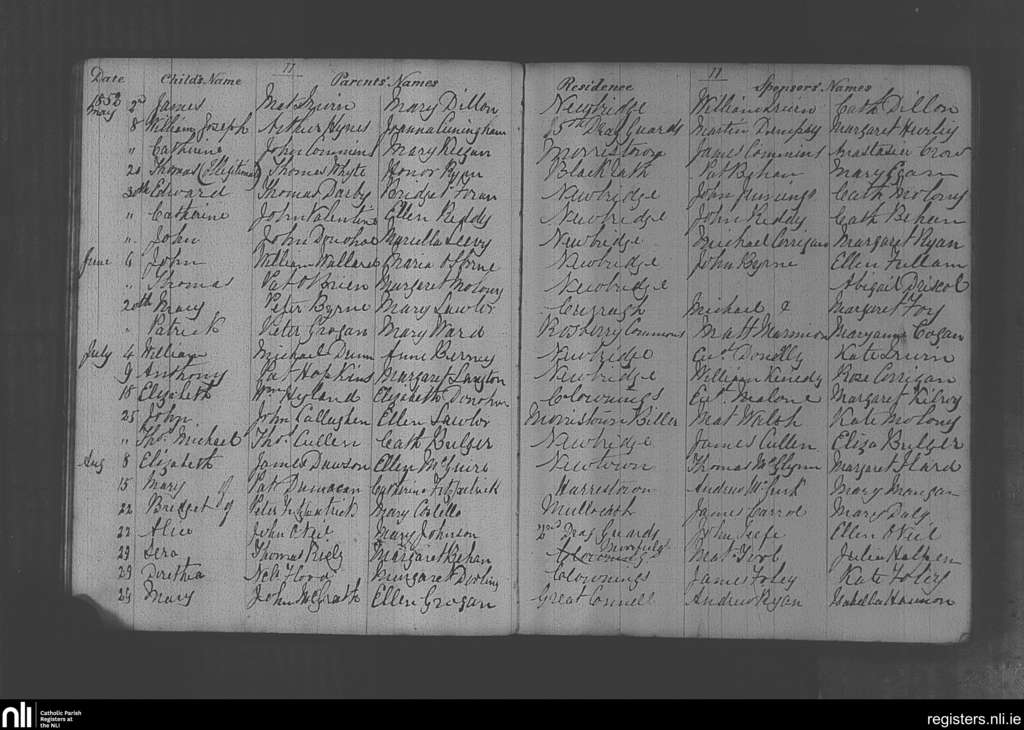 11 11
Date Child's Name Parents' Names Residence Sponsors' Names
1852
May 2nd James Mat Mary Dillon Newbridge William Cath Dillon
8 William Joseph Arthur Hynes Joanna Cuningham 15th Drag Guards Martin Dempsey Margaret Hurley
" Catherine John Commins Mary Regan Morristown James Commins Anastasia Crow
20 Thomas (Illegitimate) Thomas Whyte Honor Ryan Pat Behan Mary
30th Edward Thomas Darby Bridget Foran Newbridge John Cath Molony
" Catherine John Valentine Ellen Reddy Newbridge John Reddy Cath Behan
" John John Donohoe Newbridge Michael Corrigan Margaret Ryan
June 6 John William Wallace Maria Osborne Newbridge John Byrne Ellen Fullam
" Thomas Pat O'Brien Margaret Molony Newbridge Abigail Driscol
20th Mary Peter Byrne Mary Lawlor Michael & Margaret Foy
" Patrick Peter Grogan Mary Ward Rosberry Commons Matt Maryann Cogan
July 4 William Michael Dunn Anne Berney Newbridge Donolly Kate
9 Anthony Pat Hopkins Margaret Langton Newbridge William Kenedy Rose Corrigan
18 Elizabeth Wm Hyland Elizabeth Donohoe Clownings Malone Margaret Kilroy
25 John John Callaghan Ellen Lawlor Morristown Biller Mat Walsh Kate Molony
" Thos. Michael Thos. Cullen Cath Bulger Newbridge James Cullen Eliza Bulger
Aug 8 Elizabeth James Dawson Ellen McGuire Newtown Thomas McGlynn Margaret Ward
15 Mary of Pat Catherine Fitzpatrick Harristown Andrew Mary Mangan
22 Bridget of Peter Fitzpatrick Mary Costello James Carrol Mary Daly
22 Alice John O'Neil Mary Johnson 2nd Drag Guards John Ellen O'Neil
29 Thomas Margaret Behan Clownings Mat Julia Halpen
29 Dorethea Flood Margaret Dowling Clownings James Foley Kate Foley
29 Mary John McGrath Ellen Grogan Great Connell Andrew Ryan Isabella Hannon
nli Catholic Parish
Registers at
the NLI
registers.nli.ie